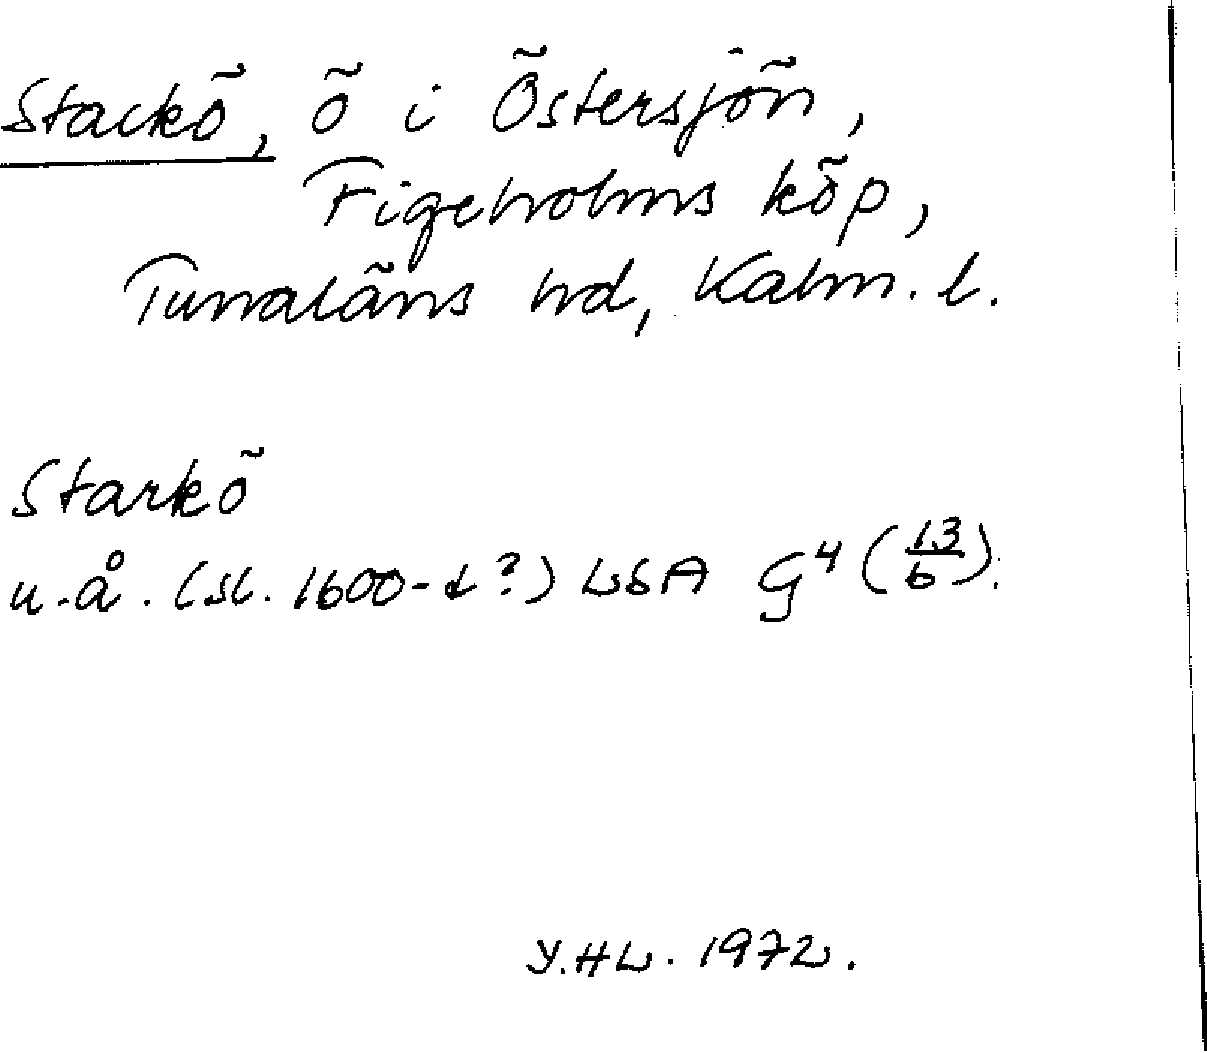 Stackö, ö i Östersjön,
Figeholms köp,
Tunaläns hd, Kalm. l.
Starkö
u.å. (sl. 1600-t?) LSA G4 (13/6).
Y.HL. 1972.